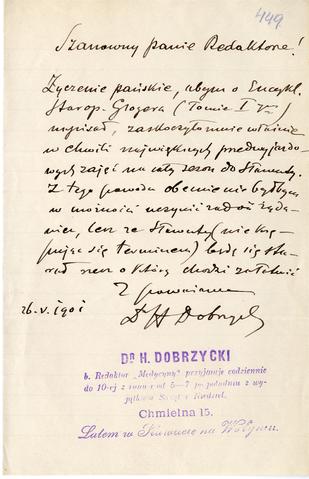 449
Szanowny panie Redaktorze!
Życzenie pańskie, abym o Encykl.
Starop. Glogera (Tomie I ym)
napisał, zaskoczyło mnie właśnie
w chwili największych przedwyjazdo-
wych zajęć na cały sezon do Sławuty.
Z tego powodu obecnie nie byłbym
w możności uczynić zadość żąda-
niu, lecz ze Sławuty (nie krę-
pując się terminem) będę się sta-
rał rzecz o którą chodzi załatwić
Z poważaniem
26.V.1901
Dr H Dobrzycki
DR H. DOBRZYCKI
b. Redaktor „Medycyny" przyjmuje codziennie
do 10-ej z rana i od 5—7 po południu z wy-
jątkiem Świąt i Niedziel.
Chmielna 15.
Latem w Sławucie na Wołyniu.